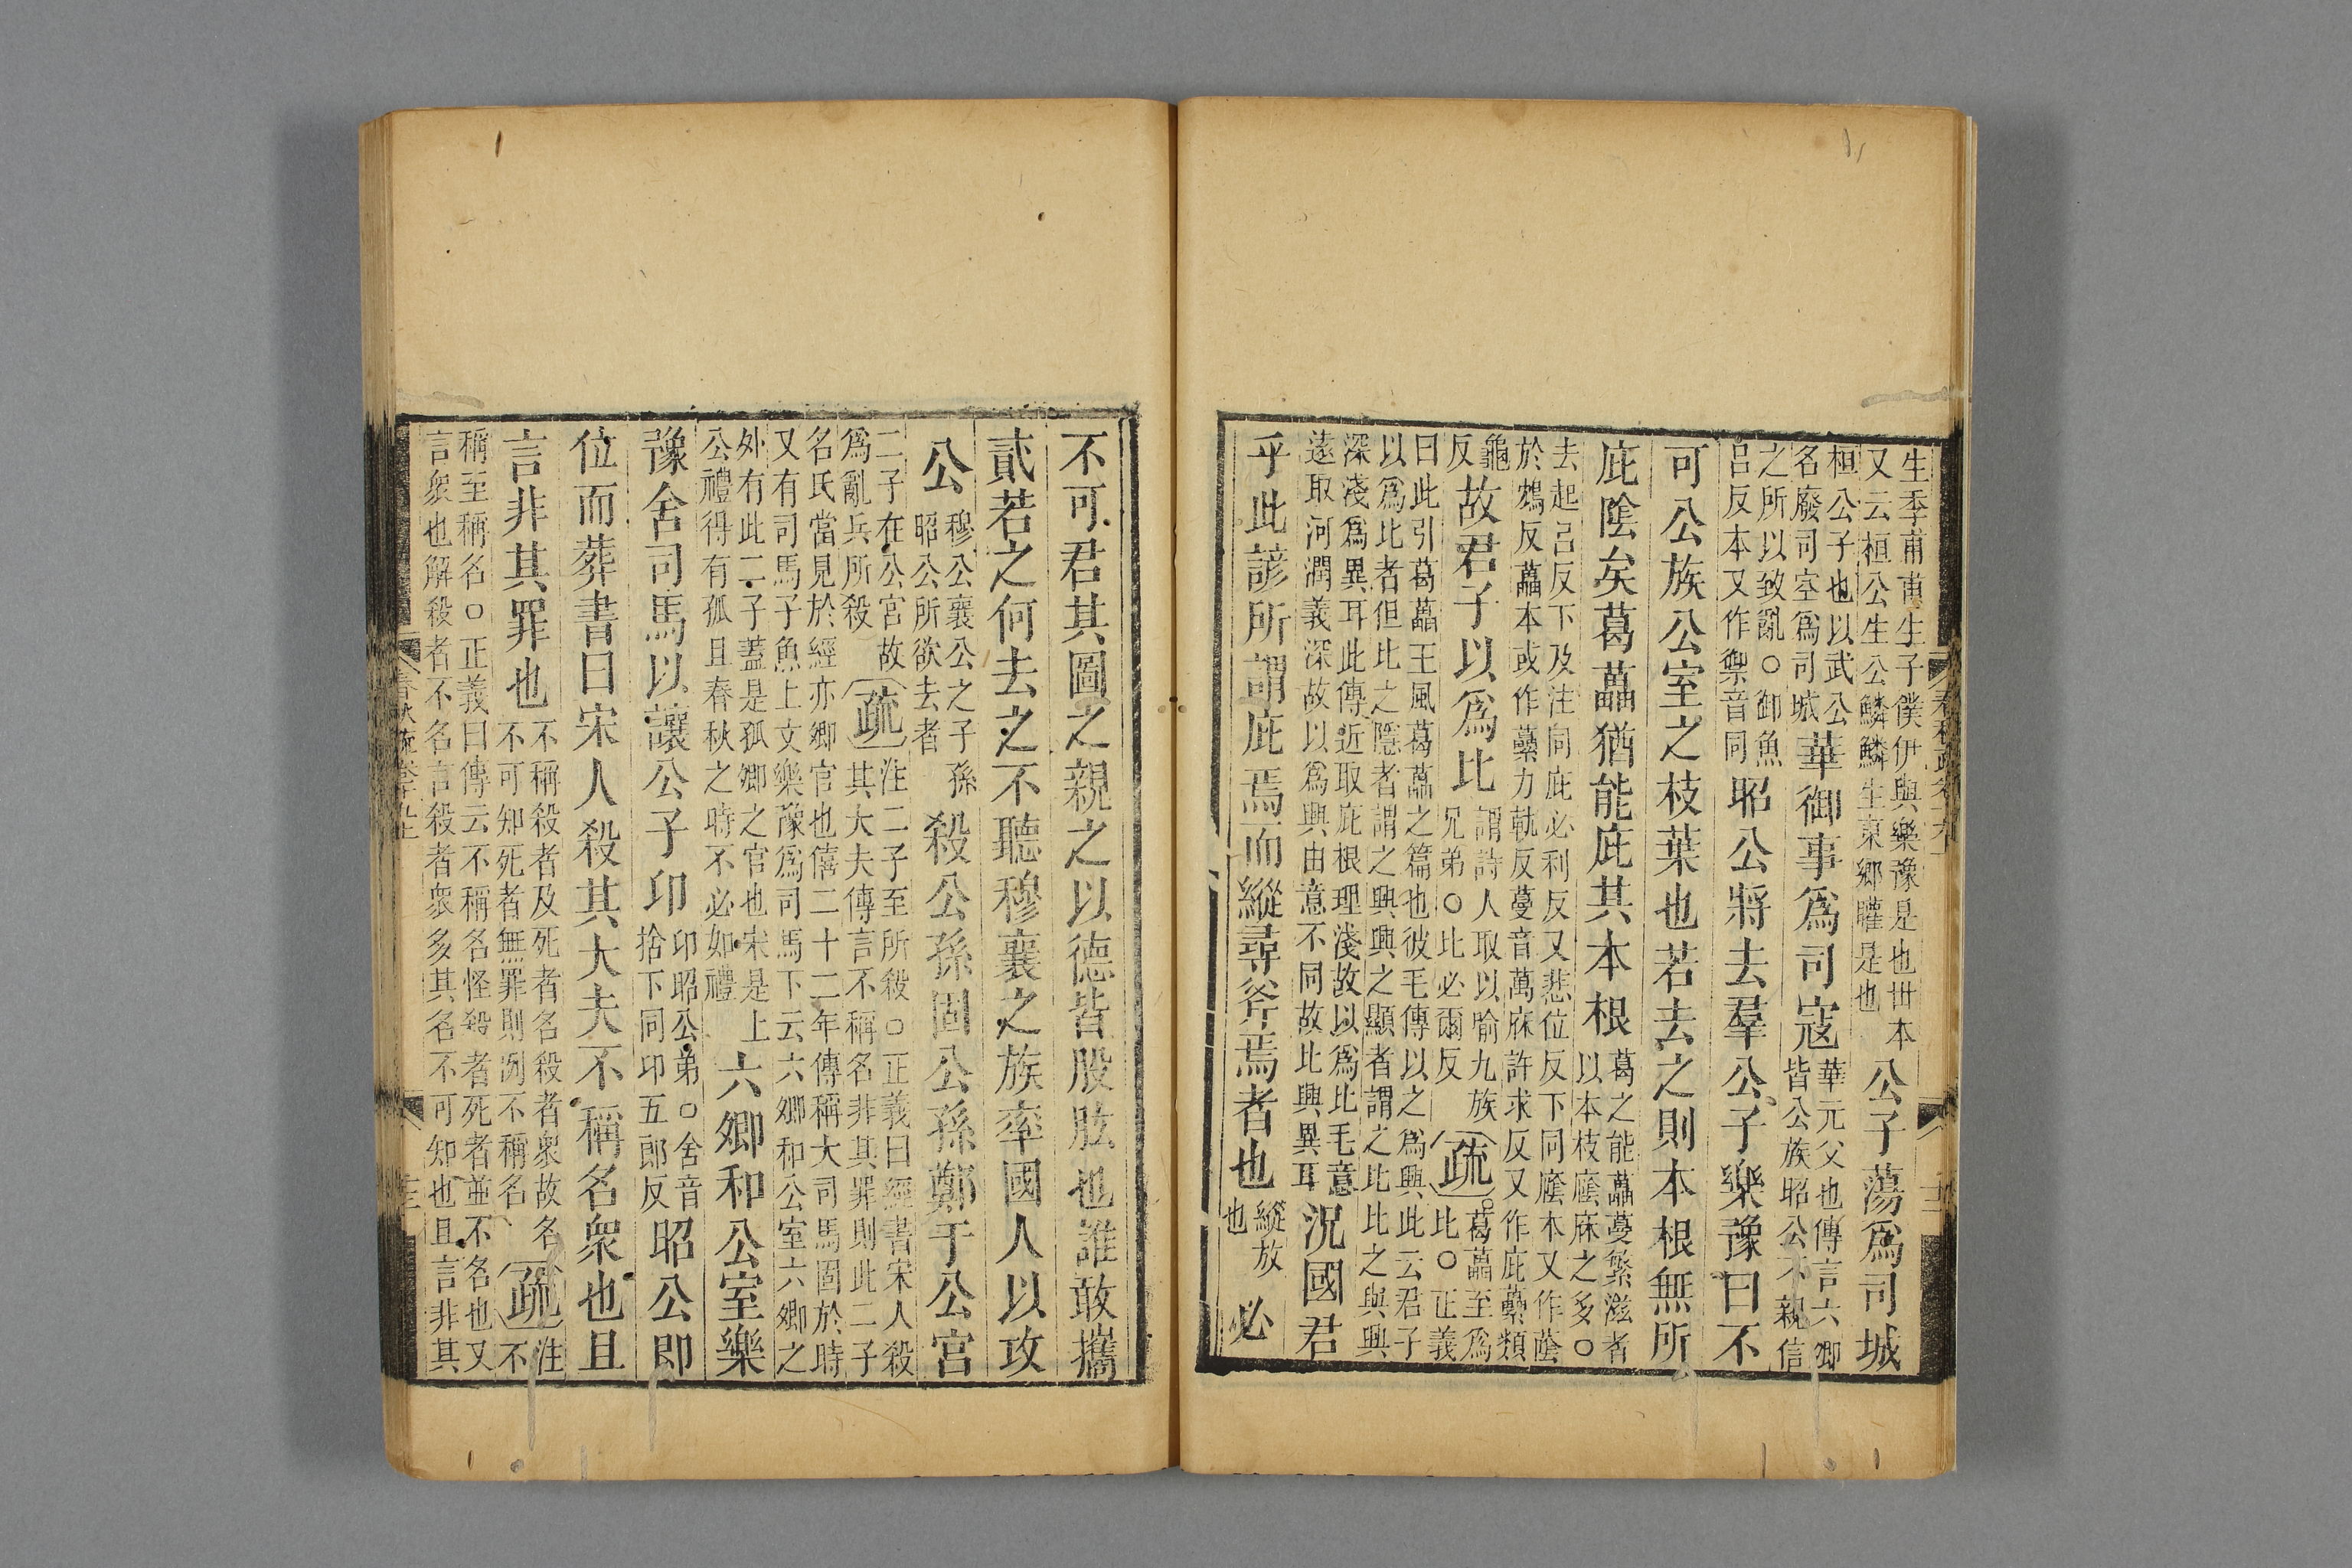 生季甫甫生子僕伊與樂豫是也世本
又云桓公生公鱗鱗生東鄉矔是也
公子蕩爲司城
桓公子也以武公
名廢司空爲司城
華御事爲司寇
華元父也傳言六卿
皆公族昭公不親信
之所以致亂○御魚
呂反本又作禦音同
昭公將去羣公子樂豫曰不
可公族公室之枝葉也若去之則本根無所
庇陰矣葛藟猶能庇其本根
葛之能藟蔓繁滋者
以本枝廕庥之多○
去起呂反下及注同庇必利反又悲位反下同廕本又作蔭
於鴆反藟本或作虆力軌反蔓音萬庥許求反又作庇虆類
龜
反
故君子以爲比
謂詩人取以喻九族
兄弟○比必爾反
疏
葛藟至爲
比○正義
曰此引葛藟王風葛藟之篇也彼毛傳以之爲興此云君子
以爲比者但比之隱者謂之興興之顯者謂之比比之與興
深淺爲異耳此傳近取庇根理淺故以爲比毛意
遠取河潤義深故以爲興由意不同故比興異耳
況國君
乎此諺所謂庇焉而縱尋斧焉者也
縱放
也
必
不可君其圖之親之以德皆股肱也誰敢攜
貳若之何去之不聽穆襄之族率國人以攻
公
穆公襄公之子孫
昭公所欲去者
殺公孫固公孫鄭于公宮
二子在公宮故
爲亂兵所殺
疏
注二子至所殺○正義曰經書宋人殺
其大夫傳言不稱名非其罪則此二子
名氏當見於經亦卿官也僖二十二年傳稱大司馬固於時
又有司馬子魚上文樂豫爲司馬下云六卿和公室六卿之
外有此二子蓋是孤卿之官也宋是上
公禮得有孤且春秋之時不必如禮
六卿和公室樂
豫舍司馬以讓公子卬
卬昭公弟○舍音
捨下同卬五郎反
昭公即
位而葬書曰宋人殺其大夫不稱名衆也且
言非其罪也
不稱殺者及死者名殺者衆故名
不可知死者無罪則例不稱名
疏
注
不
稱至稱名○正義曰傳云不稱名怪殺者死者並不名也又
言衆也解殺者不名言殺者衆多其名不可知也且言非其